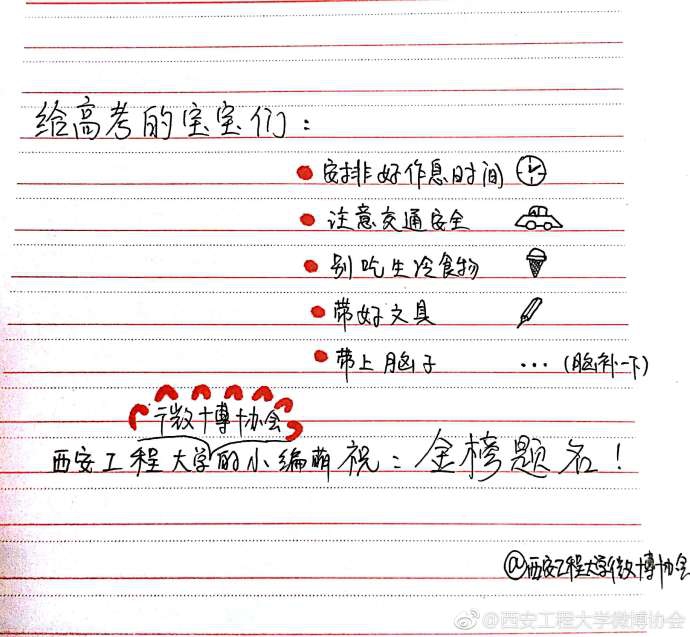 给高考的宝宝们：
• 安排好作息时间
• 注意交通安全
• 别吃生冷食物
• 带好文具
• 带上脑子 ...（脑补一下）
微博协会
西安工程大学的小编萌祝：金榜题名！
@西安工程大学微博协会
@西安工程大学微博协会